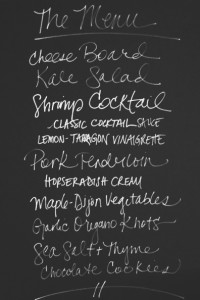 The Menu
Cheese Board
Kale Salad
Shrimp Cocktail
CLASSIC COCKTAIL SAUCE
LEMON-TARRAGON VINAIGRETTE
Pork Tenderloin
HORSERADISH CREAM
Maple-Dijon Vegetables
Garlic Oregano Knots
Sea Salt & Thyme
Chocolate Cookies